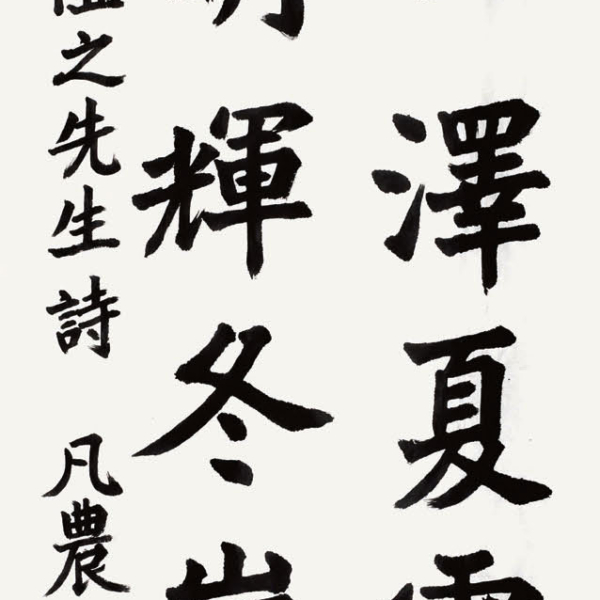 澤夏
輝冬
之先生詩 凡農